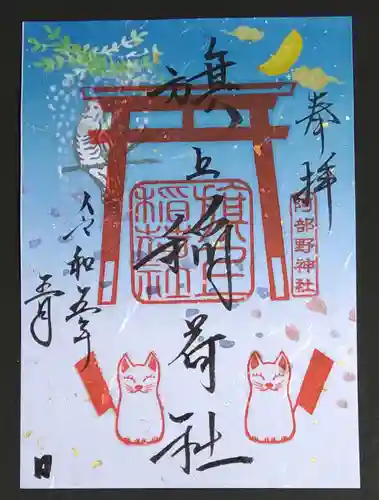 奉拝
阿部野神社
旗上稲荷社
旗上
稲荷社
令和五年
月
日